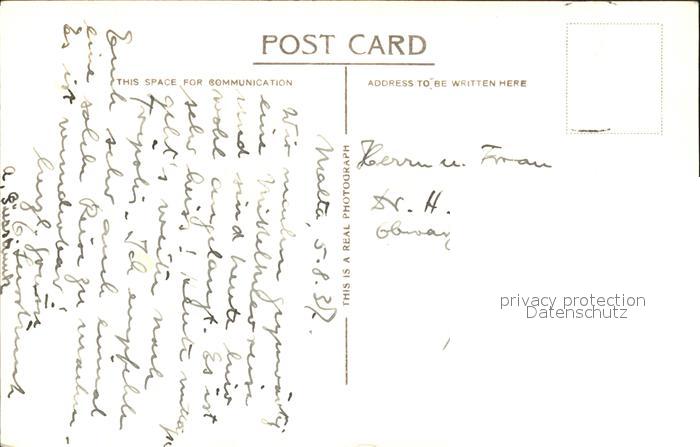 POST CARD
THIS SPACE FOR COMMUNICATION
ADDRESS TO BE WRITTEN HERE
THIS IS A REAL PHOTOGRAPH
Malta, 5.8.37.
Wir machen gegenwärtig
eine Mittelmeerreise
und sind heute hier
wohl angelangt. Es ist
sehr heiss! Heute mittag
geht's weiter nach
Tripolis. Ich empfehle
Euch sehr, auch einmal
eine solche Reise zu machen.
Es ist wunderbar!
Herzl. Grüsse
Herrn u. Frau
Dr. H.
privacy protection
Datenschutz